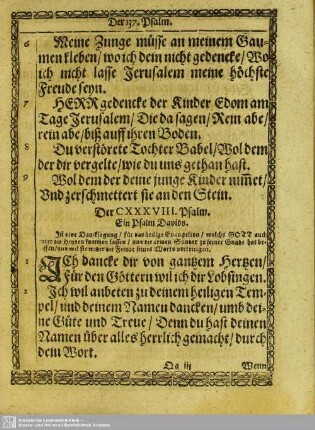 Der 137. Psalm.
6 Meine Zunge müsse an meinem Gau-
men kleben / wo ich dein nicht gedencke / Wo
ich nicht lasse Jerusalem meine höchste
Freude seyn.
7 HERR gedencke der Kinder Edom am
Tage Jerusalem / Die da sagen / Rein abe /
rein abe / biß auff ihren Boden.
8 Du verstörete Tochter Babel / Wol dem
der dir vergelte / wie du uns gethan hast.
9 Wol dem der deine junge Kinder nimet /
Und zerschmettert sie an den Stein.
Der CXXXVIII. Psalm.
Ein Psalm Davids.
Ist eine Dancksagung / für das heilige Evangelion / welchs GOTT auch
unter die Heyden kommen lassen / und die armen Sünder zu seiner Gnade hat be-
1 ICh dancke dir von gantzem Hertzen /
Für den Göttern wil ich dir Lobsingen.
2 Ich wil anbeten zu deinem heiligen Tem-
pel / und deinem Namen dancken / umb dei-
ne Güte und Treue / Denn du hast deinen
Namen über alles herrlich gemacht / durch
dein Wort.
Qq iij Wenn